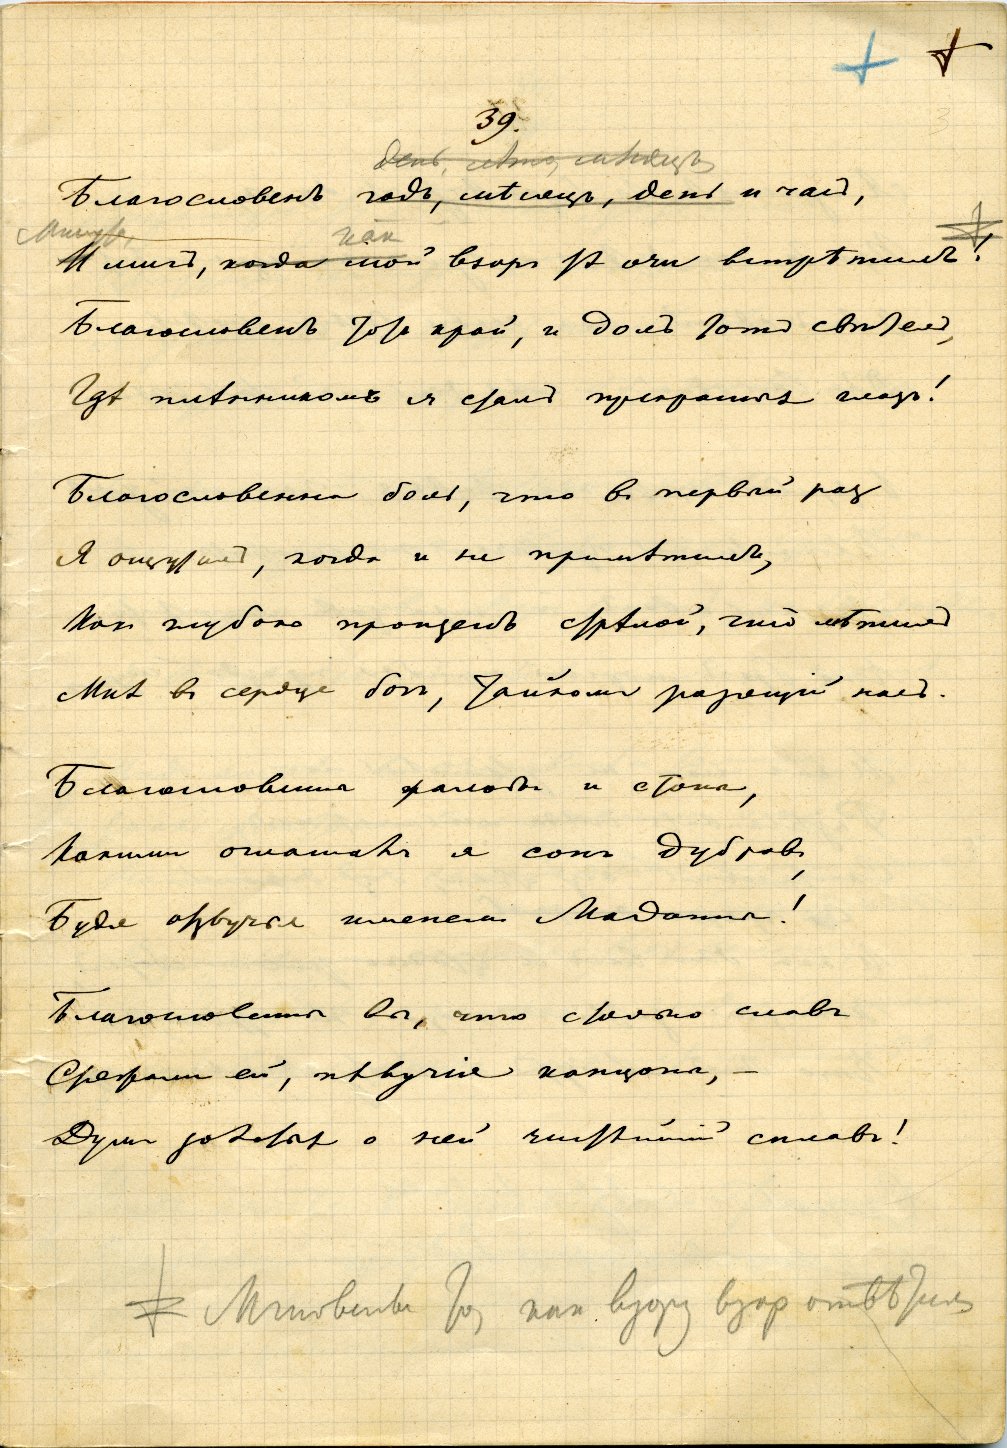 39.
день, лѣто, мѣсяцъ
Благословенъ годъ, мѣсяцъ, день и часъ,
Минута, какъ
И мигъ, когда мой взоръ тѣ очи встрѣтилъ!
Благословенъ тотъ край, и долъ тотъ свѣтелъ,
Гдѣ плѣнникомъ я сталъ прекрасныхъ глазъ!
Благословенна боль, что въ первый разъ
Я ощутилъ, когда и не примѣтилъ,
Какъ глубоко пронзенъ стрѣлой, что мѣтилъ
Мнѣ въ сердце богъ, тайкомъ разящій насъ.
Благословенны жалобы и стоны,
Какими оглашалъ я сонъ дубравъ,
Будя отзвучья именемъ Мадонны!
Благословенны вы, что столько славъ
Стяжали ей, пѣвучія канцоны, —
Думъ золотыхъ о ней чистѣйшій сплавъ!
Мгновенье то, какъ взору взоръ отвѣтилъ